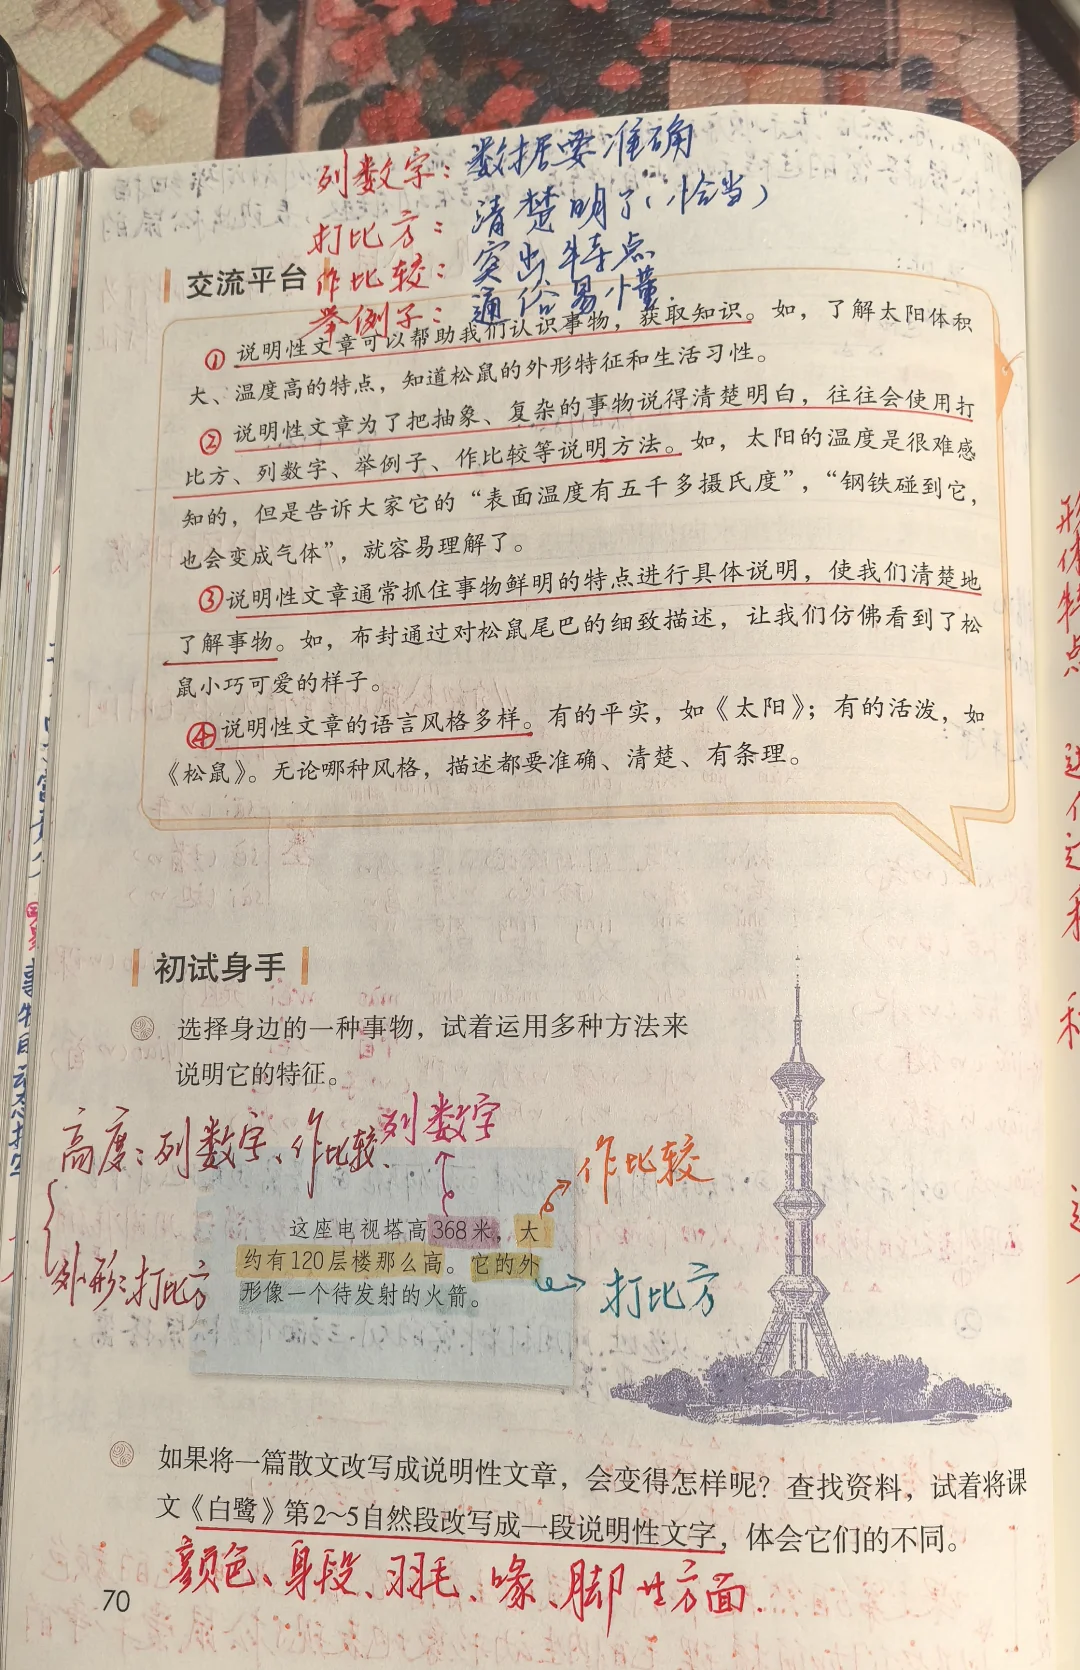 列数字：数据要准确
打比方：清楚明了（恰当）
作比较：突出特点
举例子：通俗易懂
交流平台
① 说明性文章可以帮助我们认识事物，获取知识。如，了解太阳体积
大、温度高的特点，知道松鼠的外形特征和生活习性。
② 说明性文章为了把抽象、复杂的事物说得清楚明白，往往会使用打
比方、列数字、举例子、作比较等说明方法。如，太阳的温度是很难感
知的，但是告诉大家它的“表面温度有五千多摄氏度”，“钢铁碰到它，
也会变成气体”，就容易理解了。
③ 说明性文章通常抓住事物鲜明的特点进行具体说明，使我们清楚地
了解事物。如，布封通过对松鼠尾巴的细致描述，让我们仿佛看到了松
鼠小巧可爱的样子。
④ 说明性文章的语言风格多样。有的平实，如《太阳》；有的活泼，如
《松鼠》。无论哪种风格，描述都要准确、清楚、有条理。
初试身手
选择身边的一种事物，试着运用多种方法来
说明它的特征。
高度：列数字、作比较、
列数字
作比较
这座电视塔高368米，大
约有120层楼那么高。它的外
形像一个待发射的火箭。
外形：打比方
打比方
如果将一篇散文改写成说明性文章，会变得怎样呢？查找资料，试着将课
文《白鹭》第2~5自然段改写成一段说明性文字，体会它们的不同。
颜色、身段、羽毛、喙、脚 方面.
70
形
体
特
点